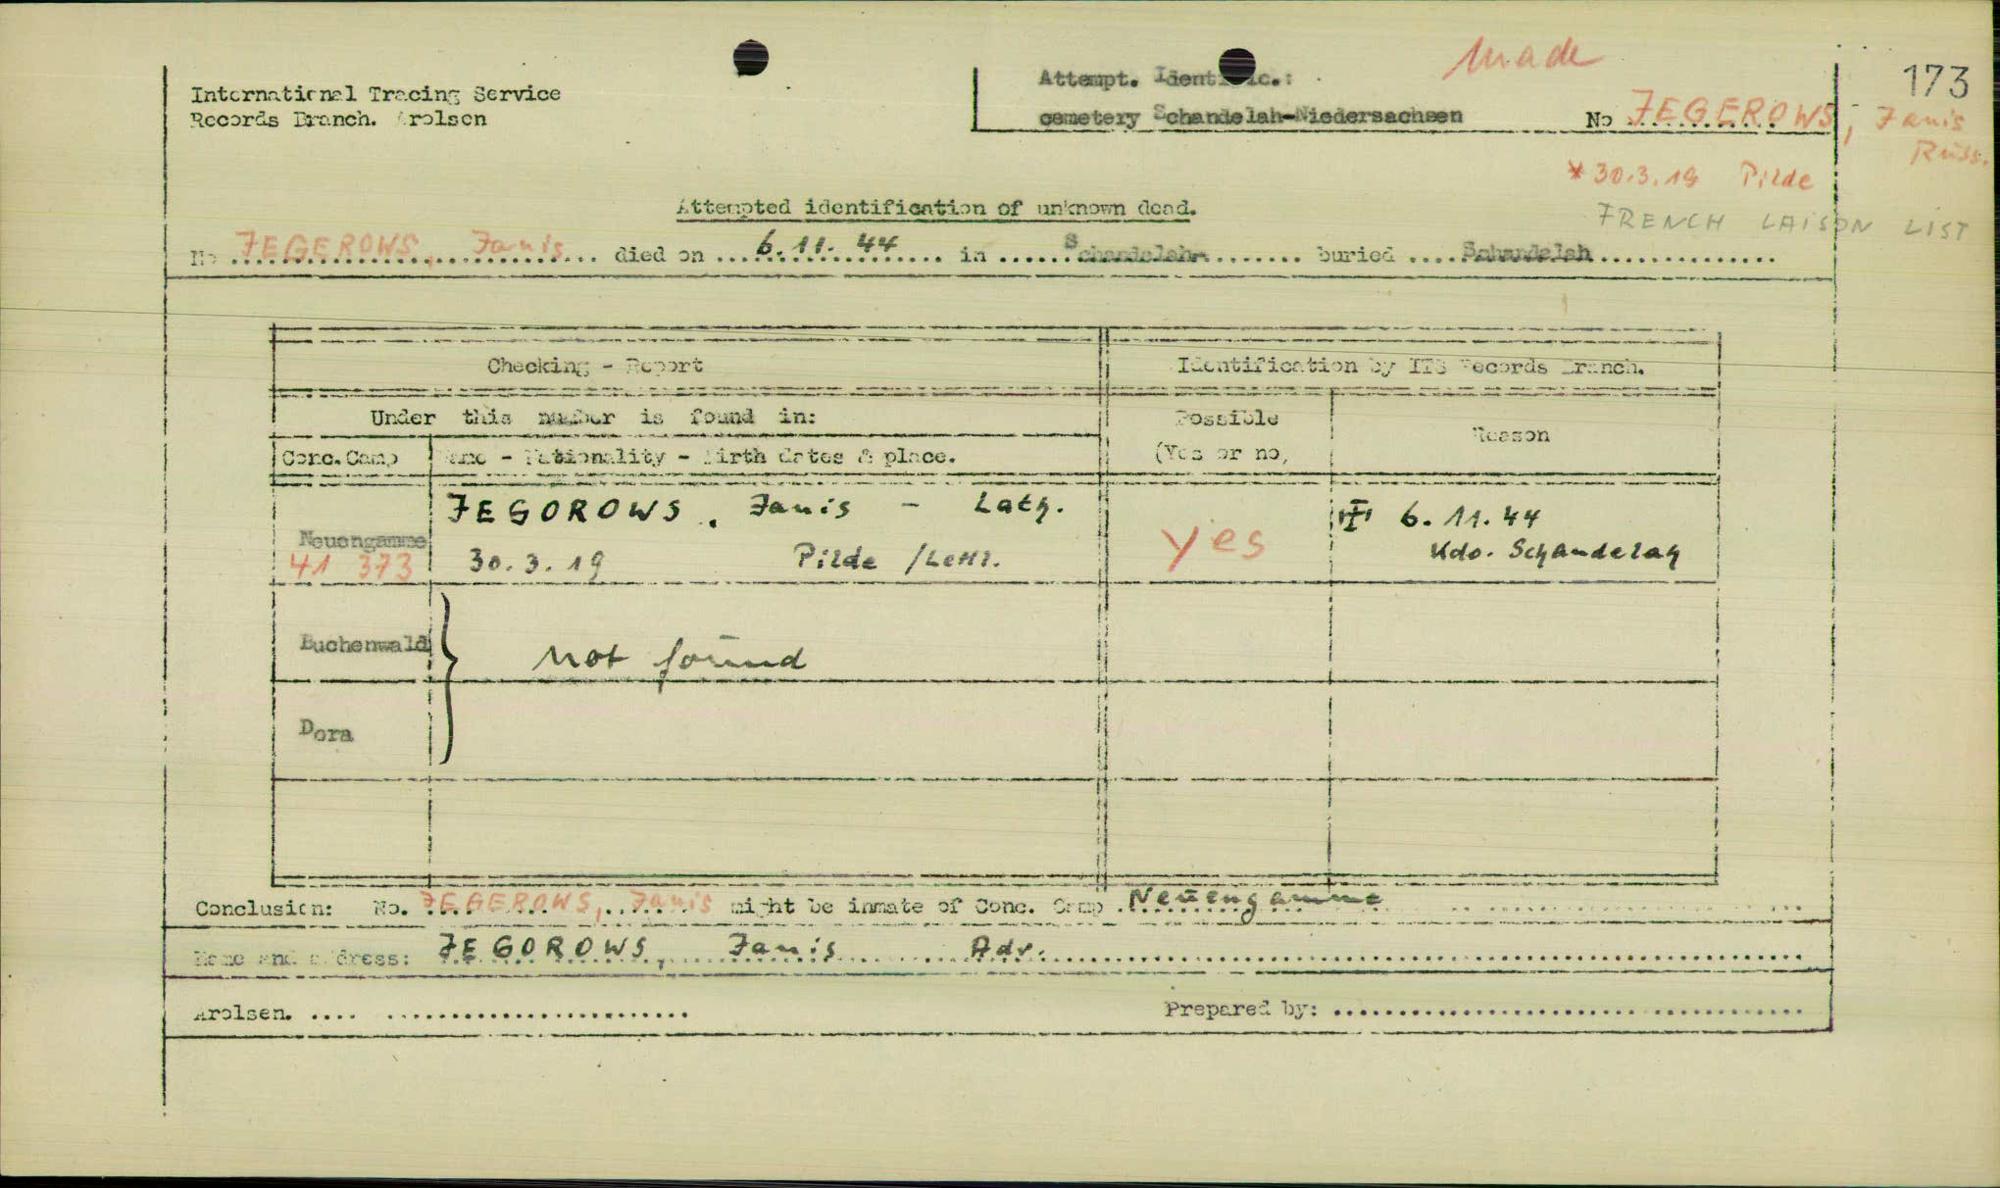 Made
173
International Tracing Service
Attempt. Identific.:
Records Branch. Arolsen
cemetery Schandelah-Niedersachsen No JEGEROWS, Janis
Russ.
* 30.3.19 Pilde
Attempted identification of unknown dead.
FRENCH LAISON LIST
No JEGEROWS, Janis died on 6.11.44 in Schandelah buried Schandelah
Checking - Report Identification by ITS Records Branch.
Under this number is found in: Possible Reason
Conc. Camp Name - Nationality - Birth dates & place. (Yes or no,
JEGOROWS, Janis - Lath. 6.11.44
Neuengamme yes Kdo. Schandelah
41 373 30.3.19 Pilde /Lettl.
Buchenwald not found
Dora
Conclusion: No. JEGEROWS, Janis might be inmate of Conc. Camp Neuengamme
Name and address: JEGOROWS, Janis Adr.
Arolsen. Prepared by: